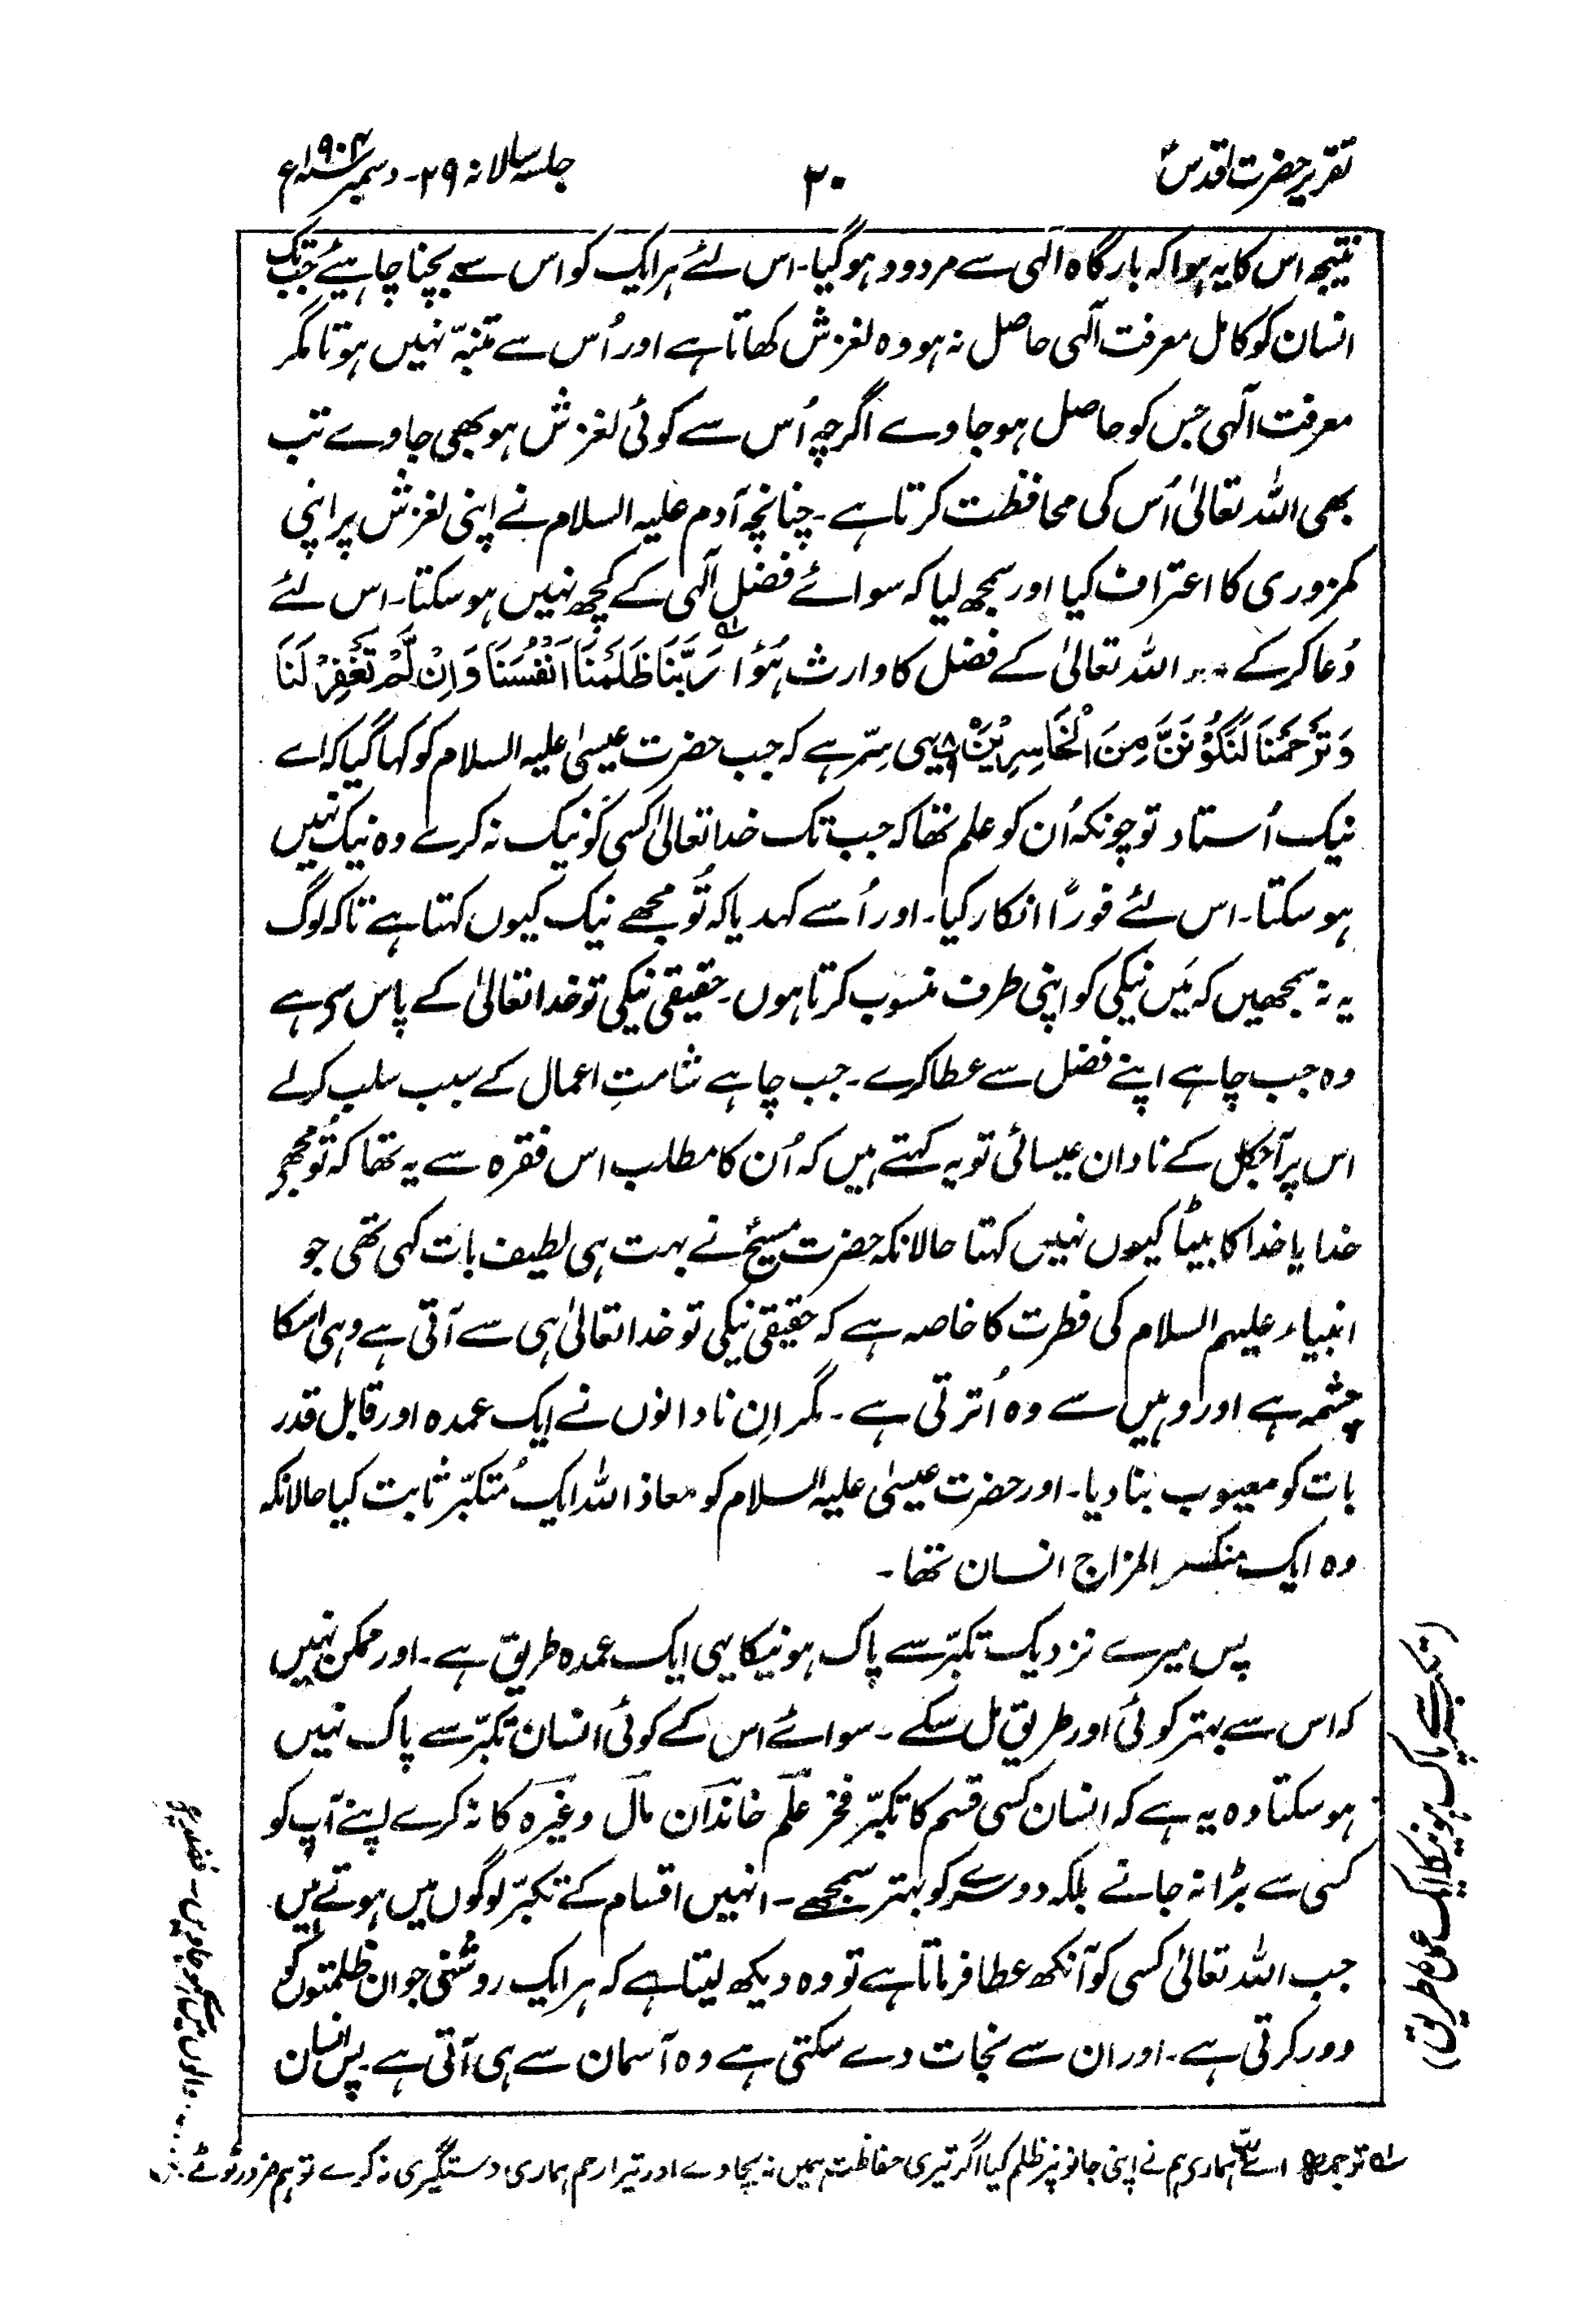 تقریر حضرت اقدسؑ ۲۰ جلسہ سالانہ ۲۹۔دسمبر ۱۹۰۴ء
نتیجہ اس کا یہ ہوا کہ بارگاہ الٰہی سے مردود ہوگیا۔ اس لئے ہر ایک کو اس سے بچنا چاہیئے جب تک
انسان کو کامل معرفت الٰہی حاصل نہ ہو وہ لغزش کھاتا ہے اور اُس سے متنبہّ نہیں ہوتا مگر
معرفت الٰہی جس کو حاصل ہو جاوے اگرچہ اُس سے کوئی لغزش ہو بھی جاوے تب
بھی اللہ تعالیٰ اُس کی محافظت کرتا ہے۔ چنانچہ آدم علیہ السلام نے اپنی لغزش پر اپنی
کمزوری کا اعتراف کیا اور سمجھ لیا کہ سوائے فضل الٰہی کے کچھ نہیں ہوسکتا۔ اس لئے
دُعا کرکے اللہ تعالیٰ کے فضل کا وارث ہُوا رَبَّنَا ظَلَمْنَا اَنْفُسَنَا وَاِنْ لَّمْ تَغْفِرْ لَنَا
وَتَرْحَمْنَا لَنَكُوْنَنَّ مِنَ الْخَاسِرِيْنَ یہی سِرّ ہے کہ جب حضرت عیسیٰ علیہ السلام کو کہا گیا کہ اے
نیک اُستاد تو چونکہ اُن کو علم تھا کہ جب تک خدا تعالیٰ کسی کو نیک نہ کرے وہ نیک نہیں
ہوسکتا۔ اس لئے فوراً انکار کیا۔ اور اُسے کہدیا کہ تُو مجھے نیک کیوں کہتا ہے تاکہ لوگ
یہ نہ سمجھیں کہ مَیں نیکی کو اپنی طرف منسوب کرتا ہوں۔ حقیقی نیکی تو خدا تعالیٰ کے پاس ہی ہے
وہ جب چاہے اپنے فضل سے عطا کرے۔ جب چاہے شامتِ اعمال کے سبب سلب کرلے
اس پر آجکل کے نادان عیسائی تو یہ کہتے ہیں کہ اُن کا مطلب اس فقرہ سے یہ تھا کہ تُو مجھے
خدا یا خدا کا بیٹا کیوں نہیں کہتا حالانکہ حضرت مسیحؑ نے بہت ہی لطیف بات کہی تھی جو
انبیاء علیہم السلام کی فطرت کا خاصہ ہے کہ حقیقی نیکی تو خدا تعالیٰ ہی سے آتی ہے وہی اسکا
چشمہ ہے اور وہیں سے وہ اُترتی ہے۔ مگر اِن نادانوں نے ایک عمدہ اور قابل قدر
بات کو معیوب بنا دیا۔ اور حضرت عیسیٰ علیہ السلام کو معاذ اللہ ایک مُتکبّر ثابت کیا حالانکہ
وہ ایک منکسر المزاج انسان تھا۔
پس میرے نزدیک تکبّر سے پاک ہونیکا یہی ایک عمدہ طریق ہے۔ اور ممکن نہیں
کہ اس سے بہتر کوئی اور طریق مل سکے۔ سوائے اس کے کوئی انسان تکبّر سے پاک نہیں
ہوسکتا وہ یہ ہے کہ انسان کسی قسم کا تکبّر فخر علم خاندان مال وغیرہ کا نہ کرے اپنے آپ کو
کسی سے بڑا نہ جانے بلکہ دوسرے کو بہتر سمجھے۔ انہیں اقسام کے تکبّر لوگوں میں ہوتے ہیں
جب اللہ تعالیٰ کسی کو آنکھ عطا فرماتا ہے تو وہ دیکھ لیتا ہے کہ ہر ایک روشنی جو ان ظلمتوں کو
دور کرتی ہے۔ اور ان سے نجات دے سکتی ہے وہ آسمان سے ہی آتی ہے پس انسان
(تکبر سے پاک ہونیکا ایک عمدہ طریق)
ترجمہ اے رب ہمارے ہم نے اپنی جانوں پر ظلم کیا اگر تیری حفاظت ہمیں نہ بچاوے اور تیرا رحم ہماری دستگیری نہ کرے تو ہم ضرور ٹوٹے
والوں میں ہو جاویں۔